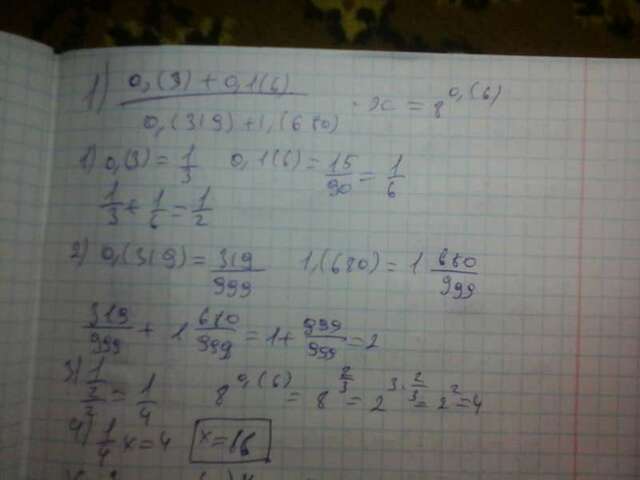 1) (0,(3) + 0,1(6)) / (0,(319) + 1,(680)) · x = 8^0,(6)
1) 0,(3) = 1/3 0,1(6) = 15/90 = 1/6
1/3 + 1/6 = 1/2
2) 0,(319) = 319/999 1,(680) = 1 680/999
319/999 + 1 680/999 = 1 + 999/999 = 2
3) 1/2/2 = 1/4 8^0,(6) = 8^2/3 = 2^3·2/3 = 2^2 = 4
4) 1/4 x = 4 x = 16